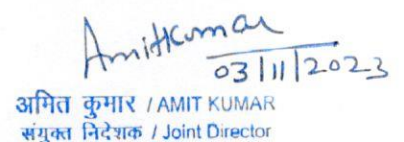 Amitkumar
03/11/2023
अमित कुमार / AMIT KUMAR
संयुक्त निदेशक / Joint Director